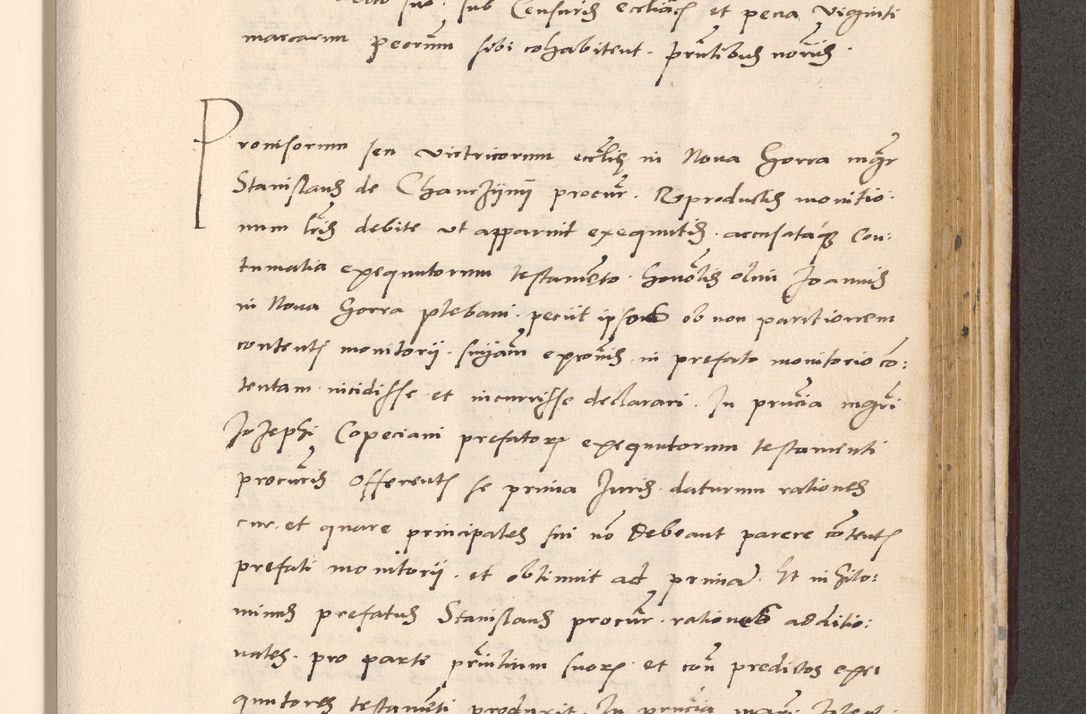 suo · sub Censuris eccliacs et pena viginti
marcarum pecorum sibi cohabitent · prntibus noriis ·
Provisorum seu victricorum ecclie in Nova Gorra magr
Stanislaus de Chanczijnij procur · Reproductis monitio-
num lris debite ut apparuit exequutis · accusataque Con:
tumatia exequutorum testamento · honolis olim Joannis
in Nova Gorra plebani · peciit ipsos ob non paritionem
contentis monitorij · sniam exconis in prefato monitorio co:
tentam incidisse et incurrisse declarari · In pruncia magri
Josephi Copeciani prefator exequutorum testamenti
procuris offerentis se prima Juris daturum rationes
cur et quare principales sui no debeant parere contentis
prefati monitorij · et obtinuit ad prima · Et in hilo:
minus prefatus Stanislaus procur · rationes additio:
nales · pro parte prinlium suor et con predictos exe
quutores testamenti produxit · In pruncia